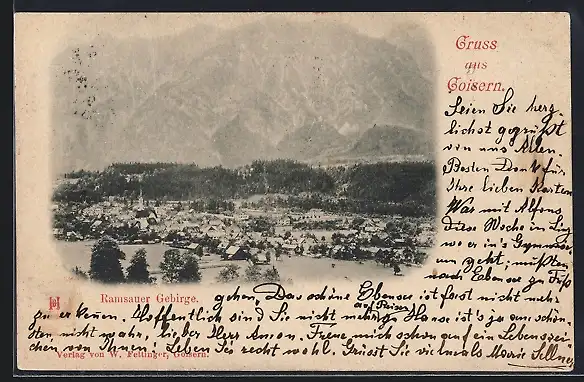 Gruss
aus
Goisern.
Seien Sie herz-
lichst gegrüßt
von uns Allen.
Besten Dank für
Ihre lieben Karten
War mit Alfons
diese Woche in Linz
wo er in's Gymnasium
geht; mußten
nach Ebensee zu Fuß
Ramsauer Gebirge.
gehen. Das schöne Ebensee ist fast nicht mehr
zu erkennen. Hoffentlich sind Sie nicht mehr
auf Reisen
zu Hause ist's ja am schön-
sten nicht wahr, lieber Herr Anton. Freue mich schon auf ein Lebenszei-
chen von Ihnen! Leben Sie recht wohl. Grüsst Sie vielmals Marie Sellner
Verlag von W. Fettinger, Goisern.